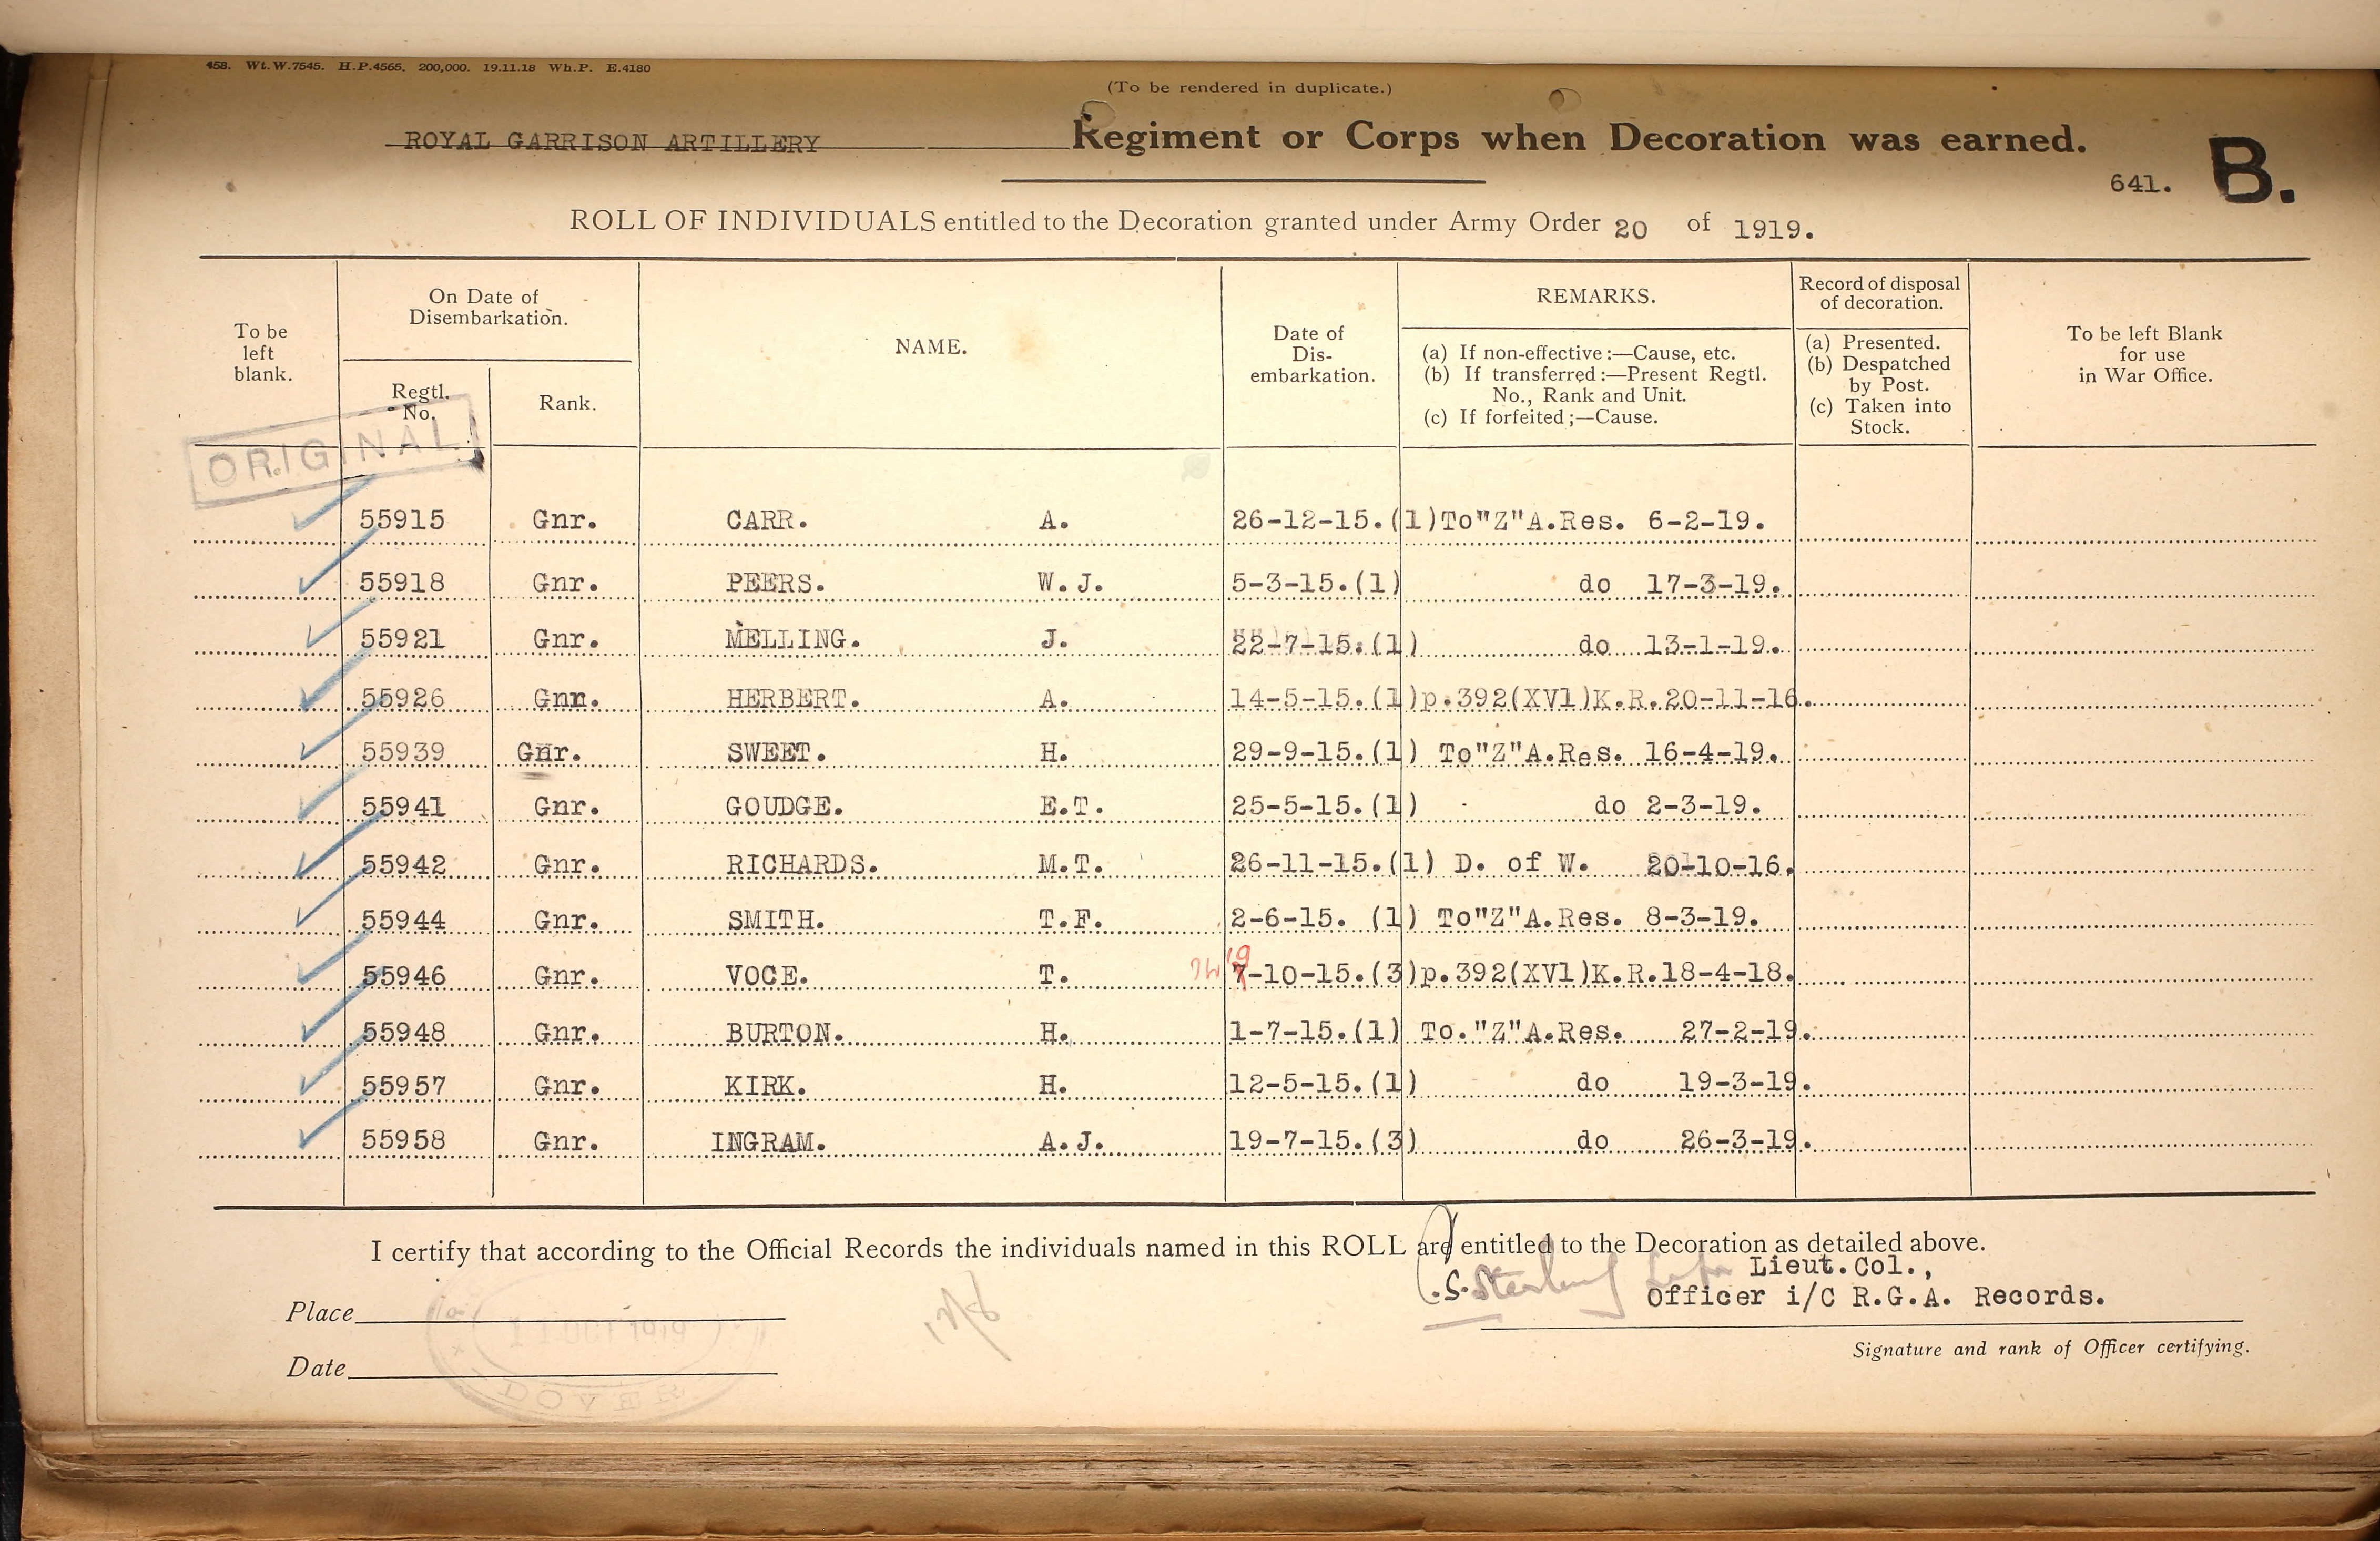 458. Wt.W.7545. H.P.4565. 200,000. 19.11.18 Wh.P. E.4180
(To be rendered in duplicate.)
ROYAL GARRISON ARTILLERY Regiment or Corps when Decoration was earned.
641. B.
ROLL OF INDIVIDUALS entitled to the Decoration granted under Army Order 20 of 1919.
To be left blank.
On Date of Disembarkation.
Regtl. No.
Rank.
NAME.
Date of Dis-embarkation.
REMARKS.
(a) If non-effective:—Cause, etc.
(b) If transferred:—Present Regtl. No., Rank and Unit.
(c) If forfeited;—Cause.
Record of disposal of decoration.
(a) Presented.
(b) Despatched by Post.
(c) Taken into Stock.
To be left Blank for use in War Office.
ORIGINAL
55915 Gnr. CARR. A. 26-12-15.(1)To"Z"A.Res. 6-2-19.
55918 Gnr. PEERS. W.J. 5-3-15.(1) do 17-3-19.
55921 Gnr. MELLING. J. 22-7-15.(1) do 13-1-19.
55926 Gnr. HERBERT. A. 14-5-15.(1)p.392(XV1)K.R.20-11-16.
55939 Gnr. SWEET. H. 29-9-15.(1) To"Z"A.Res. 16-4-19.
55941 Gnr. GOUDGE. E.T. 25-5-15.(1) do 2-3-19.
55942 Gnr. RICHARDS. M.T. 26-11-15.(1) D. of W. 20-10-16.
55944 Gnr. SMITH. T.F. 2-6-15. (1) To"Z"A.Res. 8-3-19.
55946 Gnr. VOCE. T. 7-10-15.(3)p.392(XV1)K.R.18-4-18.
55948 Gnr. BURTON. H. 1-7-15.(1) To."Z"A.Res. 27-2-19.
55957 Gnr. KIRK. H. 12-5-15.(1) do 19-3-19.
55958 Gnr. INGRAM. A.J. 19-7-15.(3) do 26-3-19.
I certify that according to the Official Records the individuals named in this ROLL are entitled to the Decoration as detailed above.
Lieut.Col.,
Officer i/C R.G.A. Records.
Signature and rank of Officer certifying.
Place
Date
11 OCT 1919
DOVER